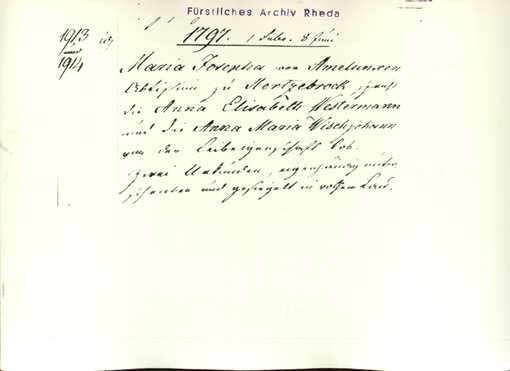 Fürstliches Archiv Rheda
1797. 1 Febr. 8 Juni
1913
und
1914
Maria Josepha von Amelunxen
Äbtissin zu Hertzebrock spricht
die Anna Elisabeth Westermann
und die Anna Maria Wischjohann
von der Leibeigenschaft los.
Zwei Urkunden, eigenhändig unter-
schrieben und gesiegelt in rothem Lack.